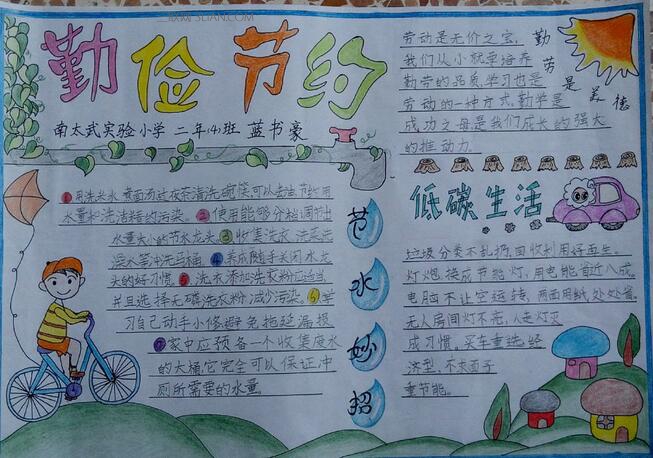 勤俭节约
南太武实验小学 二年(4)班 蓝书豪
劳动是无价之宝，
我们从小就要培养
勤劳的品质,学习也是
劳动的一种方式,勤学是
成功之母,是我们成长的强大
的推动力
勤劳是美德
①用洗米水、煮面汤过夜茶清洗碗筷可以去油节约用
水量和洗洁精的污染。②使用能够分档调节出
水量大小的节水龙头。③收集洗衣、洗菜洗
澡水等冲洗马桶④养成随手关闭水龙
头的好习惯⑤洗衣添加洗衣粉应适当
并且选择无磷洗衣粉,减少污染。⑥学
习自己动手小修避免拖延漏损
⑦家中应预备一个收集废水
的大桶,它完全可以保证冲
厕所需要的水量。
节水妙招
低碳生活
垃圾分类不乱扔,回收利用好再生。
灯炮换成节能灯,用电能省近八成。
电脑不让空运转,两面用纸处处省。
无人房间灯不亮,人走灯灭
成习惯。买车重选经
济型,不求面子
重节能。